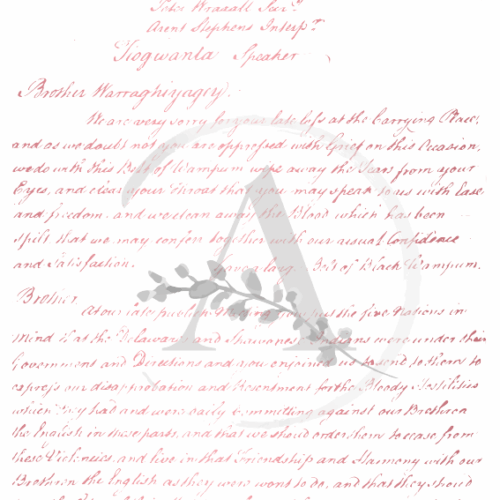 Peter Wraxall Secry.
Arent Stephens Interpr.
Tiogwanta Speaker
Brother Warraghiyagey.
We are very sorry for your late loss at the Carrying Place,
and as we doubt not you are oppressed with Grief on this Occasion,
we do with this Belt of Wampum wipe away the Tears from your
Eyes, and clear your throat that you may speak to us with Ease
and freedom, and we clean away the Blood which has been
spilt that we may confer together with our usual Confidence
and Satisfaction. Gave a large Belt of Black Wampum.
Brother
At our late publick Meeting you put the five Nations in
mind that the Delawares and Shawanese Indians were under their
Government and Directions and you enjoined us to send to them to
express our disapprobation and Resentment for the Bloody Hostilities
which they had and were daily committing against our Brethren
the English in these parts, and that we should order them to cease from
these Violencies, and live in that Friendship and Harmony with our
Brethren the English as they were wont to do, and that they should
A